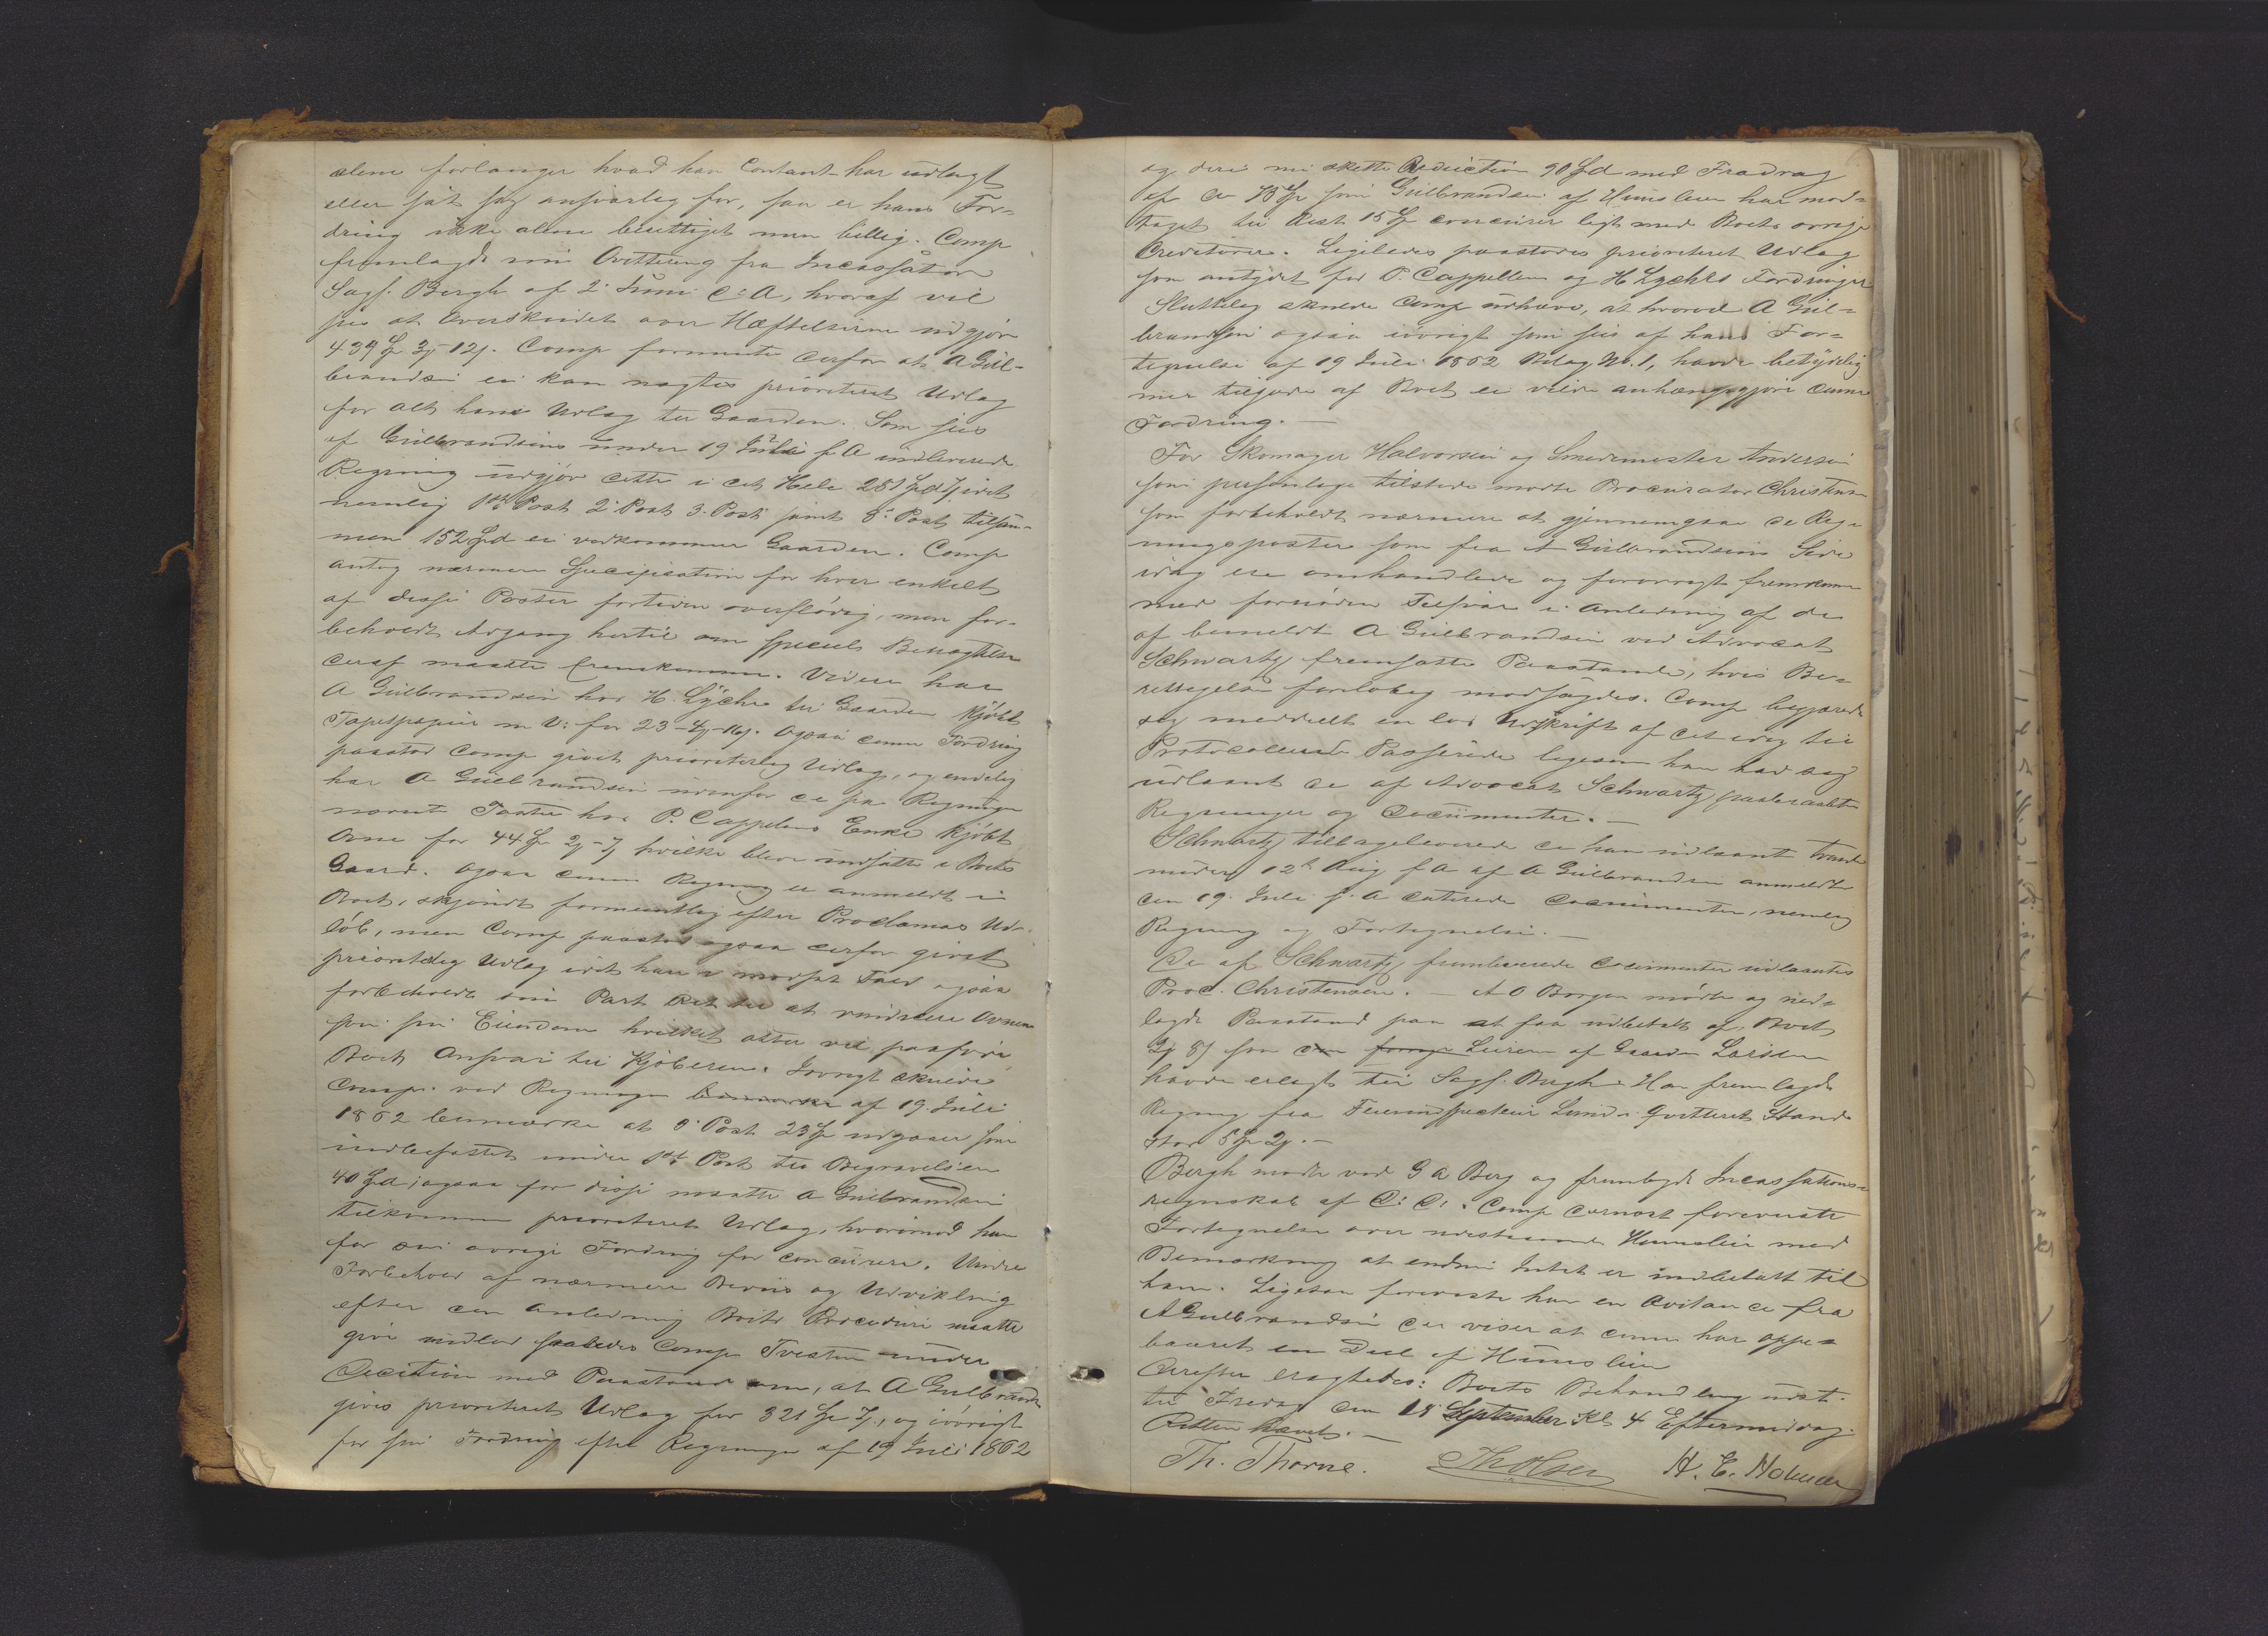 alene forlanger hvad han Contant har udlagt
eller sat sig ansvarlig for, saa er hans For-
dring ikke alene berettiget men billig. Comp
fremlagde en Qvittering fra Incassator
Sagf. Bergh af 2. Juni d: A, hvoraf vil
sees at Overskudet over Hæftelserne udgjør
439 Sp 3 12 . Comp formente derfor at A Gul-
brandsen ei kan nægtes prioriteret Udlag
for alt hans Udlag til Gaarden. Som sees
af Gulbrandsens under 19 Juli f A indleverede
Regning udgjør dette i det Hele 281 Spd idet
nemlig 1ste Post 2. Post 3. Post samt 8. Post tilsam-
men 152 Spd ei vedkommer Gaarden. Comp
antog nærmere Specification for hver enkelt
af disse Poster fortiden overflødig, men for-
beholdt Adgang hertil om speciel Benægtelse
deraf maatte fremkomme. Videre har
A Gulbrandsen hos H. Lyche til Gaarden kjøbt
Tapetpapir m V: for 23 - 4 - 16 . Ogsaa denne Fordring
paastod Comp givet prioriteret Udlag, og endelig
har A Gulbrandsen udenfor de paa Regningen
nævnte Poster hos P. Cappelens Enke kjøbt
Ovne for 44 Sp 2 hvilke bleve indsatte i Boets
Gaard. Ogsaa denne Regning er anmeldt i
Boet, skjøndt formentlig efter Proclamas Ud-
løb, men Comp paastod ogsaa derfor givet
prioritetlig Udlag idet han i modsat Fald ogsaa
forbeholdt sin Part Ret til at vindicere Ovnene
som sin Eiendom hvilket atter vil paaføre
Boet Ansvar til Kjøberen. Iøvrigt skulde
Comp. ved Regningen bemærke af 19. Juli
1862 bemærke at 9. Post 23 Sp udgaaer som
indbefattet under 1ste Post til Begravelsen
40 Spd; ogsaa for disse maatte A Gulbrandsen
tilkomme prioriteret Udlag, hvorimod han
for sin øvrige Fordring faar concurere. Under
Forbehold af nærmere Beviis og Udvikling
efter den Anledning Boets Procedure maatte
give indlod saaledes Comp Tvisten under
Decision med Paastand om, at A Gulbrandsen
gives prioriteret Udlag for 321 Sp , og iøvrigt
for sin Fordring efter Regningen af 19 Juli 1862
og deri nu skette Reduction 90 Spd med Fradrag
af de 75 Sp som Gulbrandsen af Huusleien har mod-
taget til Rest 15 Sp concurerer ligt med Boets øvrige
Creditorer. Ligeledes paastodes prioriteret Udlag
som antydet for P. Cappellens og H Lyches Fordringer
Sluttelig skulde Comp udhæve, at hvorvel A Gul-
brandsen ogsaa iøvrigt som sees af hans For-
tegnelse af 19 Juli 1862 Bilag No. 1, havde betydelig
mer tilgode af Boet ei vilde anhængiggjøre denne
Fordring. —
For Skomager Halvorsen og Smedemester Andersen
som personlig tilstede mødte Procurator Christensen
som forbeholdt nærmere at gjennemgaae de Reg-
ningsposter som fra A Gulbrandsens Side
idag ere omhandlede og forøvrigt fremkomme
med fornøden Tilsvar i Anledning af de
af bemeldt A Gulbrandsen ved Advocat
Schwartz fremsatte Paastande, hvis Be-
rettigelse foreløbig modsagdes. Comp begjærede
sig meddelt en lod Udskrift af det idag til
Protocollen Passerede ligesom han bad sig
udlaant de af Advocat Schwartz paaberaabte
Regninger og Documenter. —
Schwartz tilbageleverede de ham udlaant
under 12te Aug f A af A Gulbrandsen anmeldte
den 19. Juli f. A daterede Documenter, nemlig
Regning og Fortegnelse. —
De af Schwartz fremleverede Documenter udlaantes
Proc. Christensen. — A O Borgen mødte og ned-
lagde Paastand paa at faa udbetalt af Boet
2 8 som den forrige Leieren af Gaarden Larsen
havde erlagt til Sagf. Bergh. Han fremlagde
Regning fra Feierinspecteur Lund i qvitteret Stand
stor 5 Sp 2 . —
Bergh mødte ved G A Berg og fremlagde Incassations-
regnskab af D: D: . Comp dernæst foreviste
Fortegnelse over udestaaende Huusleie med
Bemærkning at endnu Intet er indbetalt til
ham. Ligesaa foreviste han en Qvitance fra
A Gulbrandsen der viser at denne har oppe-
baaret en Deel af Huusleien
Derefter eragtedes: Boets Behandling udst.
til Fredag den 18 September Kl 4 Eftermiddag.
Retten hævet. —
Th. Thorne. Th Olsen H. C. Nohmen